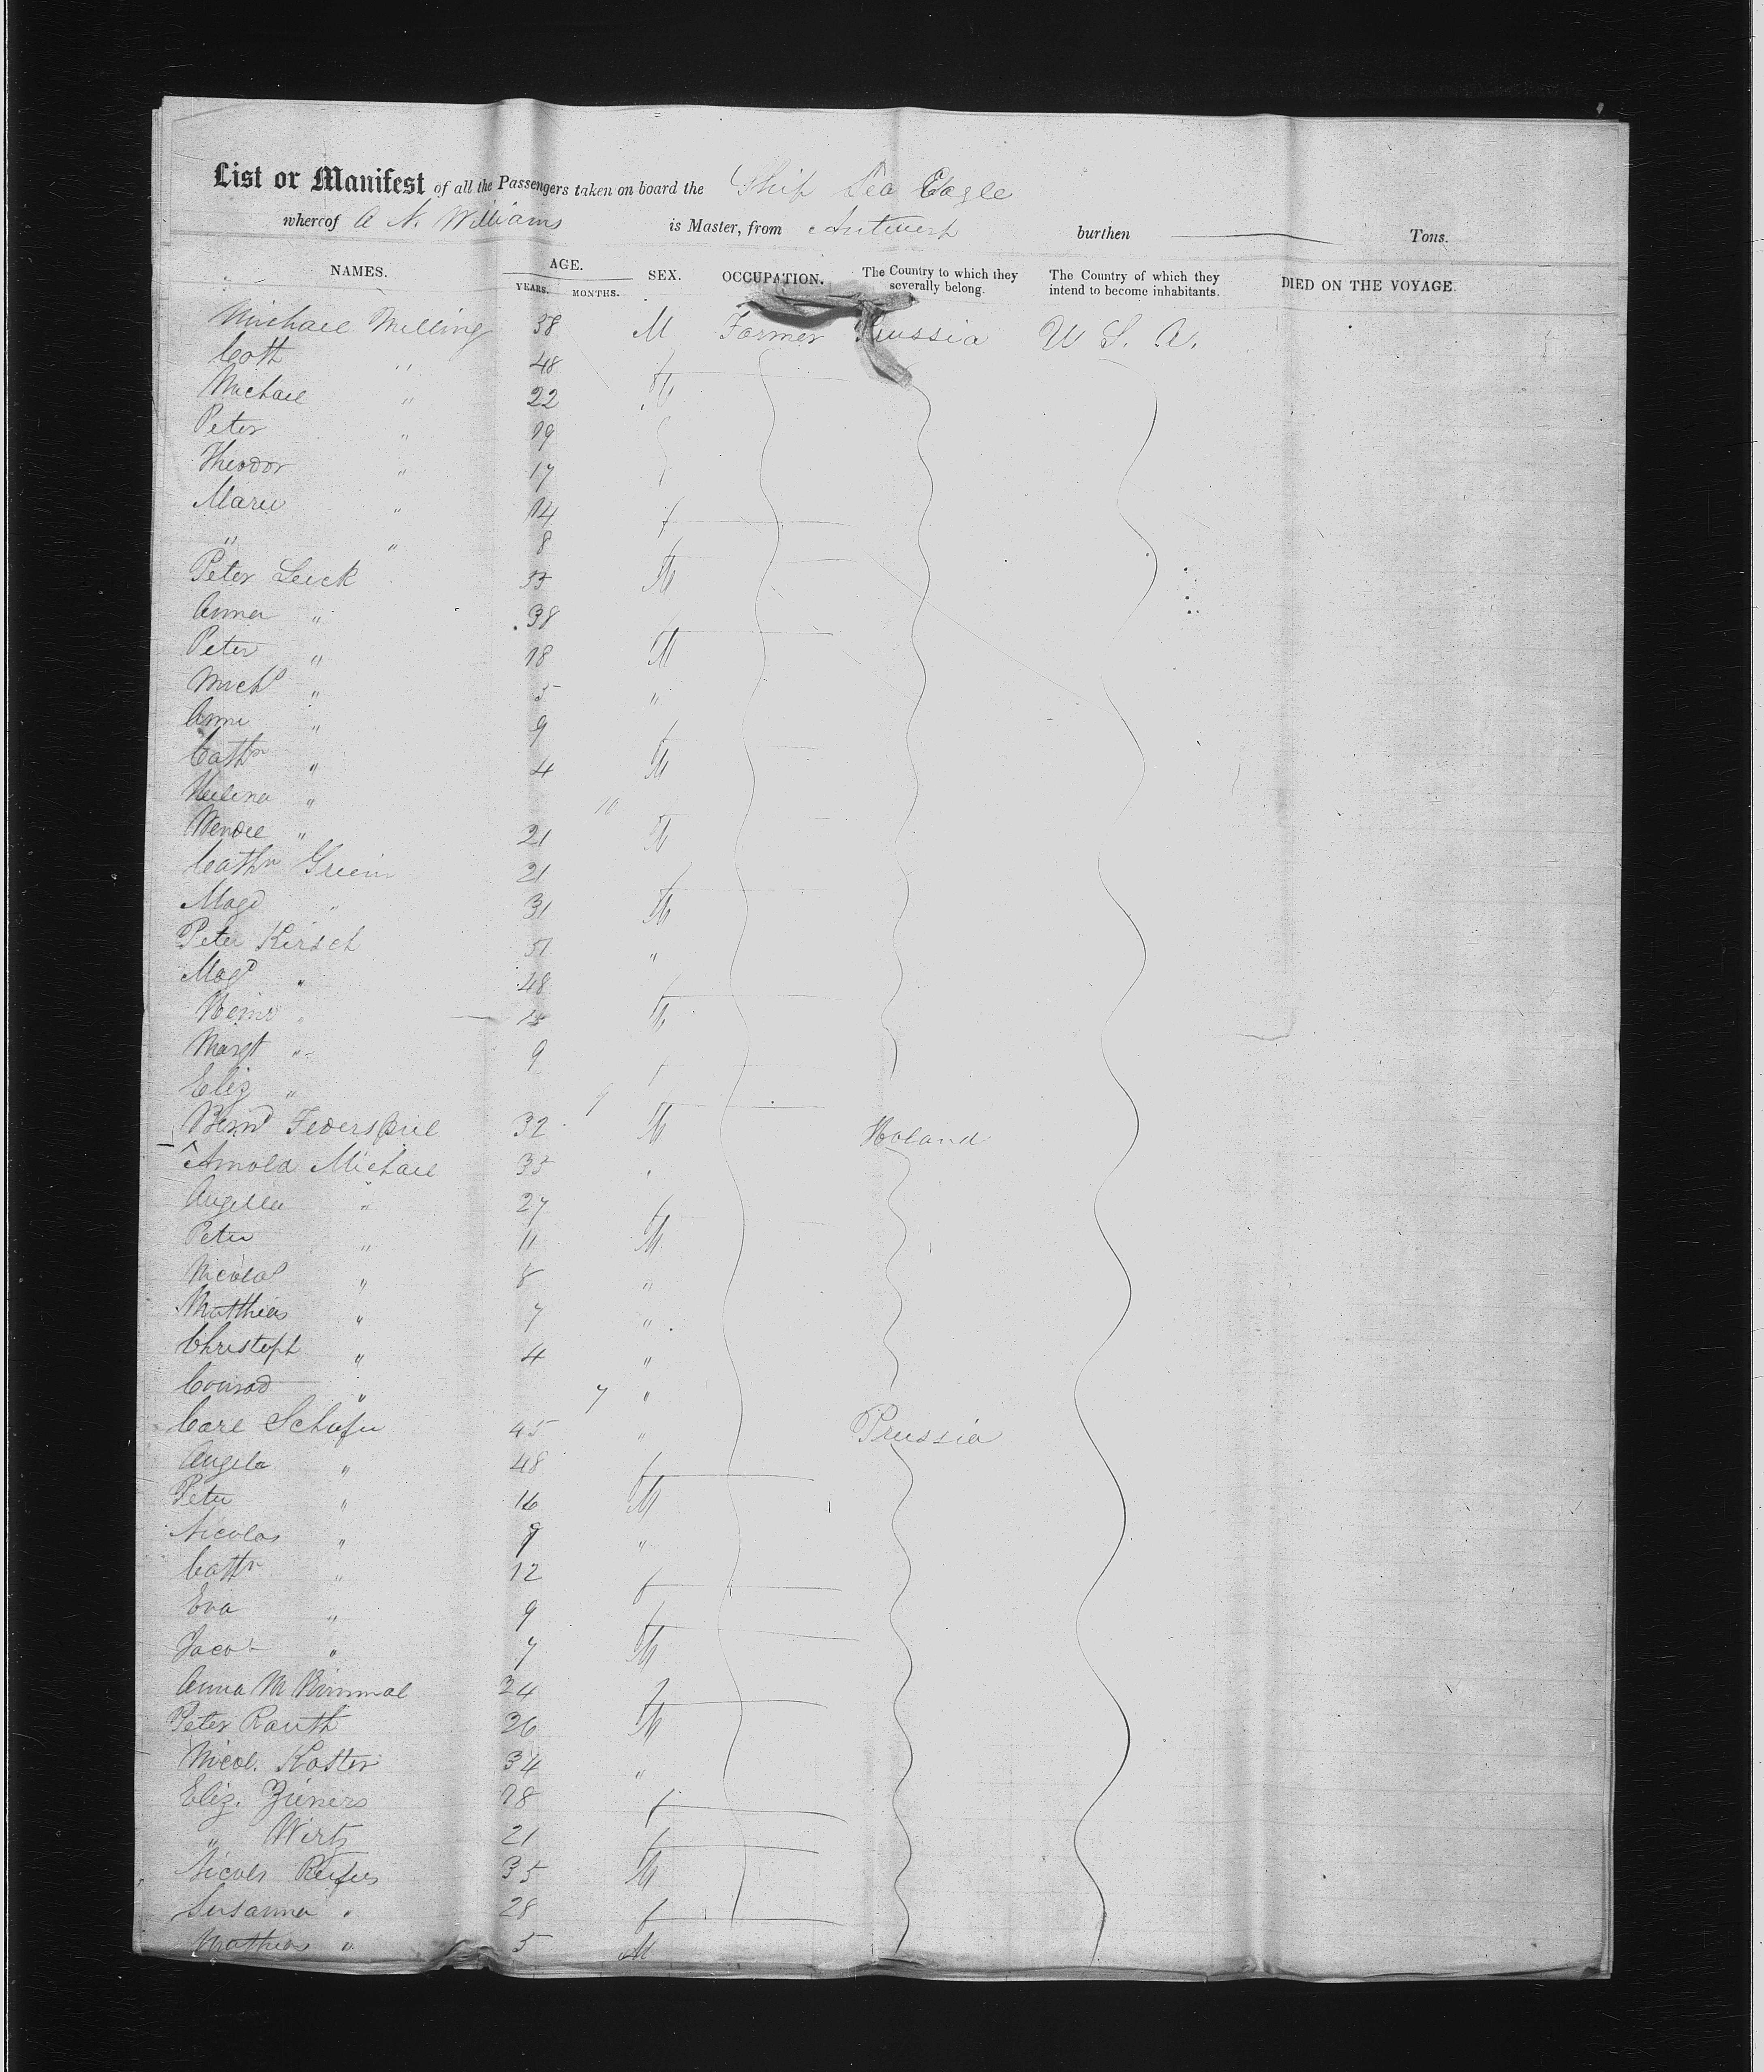 List or Manifest of all the Passengers taken on board the Ship Sea Eagle
whereof A N. Williams is Master, from Antwerp burthen Tons.
NAMES. AGE. YEARS. MONTHS. SEX. OCCUPATION. The Country to which they severally belong. The Country of which they intend to become inhabitants. DIED ON THE VOYAGE.
Michael Milling 38 M Farmer Prussia U S. A.
Cath " 48 f
Michael " 22 M
Peter " 19
Theodor " 17
Marie " 14 f
" " 8
Peter Leick 35 M
Anna " 38 f
Peter " 18 M
Michl " 5 "
Anna " 9 f
Cathn " 4
Helena " 10
Wendel " 21 M
Cathn 21 f
Magd " 31
Peter Kirsch 51 "
Magd " 48 f
Heinr " 15 M
Margt " 9 f
Eliz " 9
Bernd Federspiel 32 M Holand
Arnold Michael 35
Angella " 27 f
Peter " 11 M
Nicolas " 8 "
Matthias " 7 "
Christoph " 4 "
Conrad " 7 "
Carl Schafer 45 " Prussia
Angela " 48 f
Peter " 16 M
Nicolas " 9 "
Cathn " 12 f
Eva " 9 f
Jacob " 7 M
Anna M Kimmal 24 f
Peter Rauth 26 M
Nicol. Koster 34 "
Eliz. Zieners 18 f
" Wirtz 21 f
Nicols 35 M
Susanna " 28 f
Mathias " 5 M